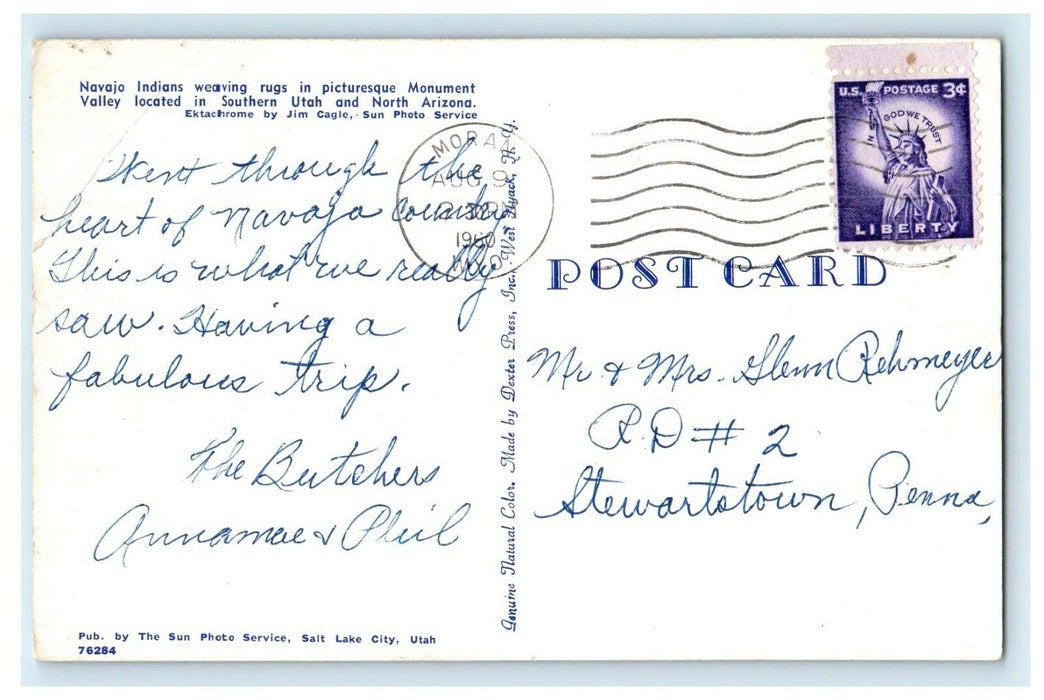 Navajo Indians weaving rugs in picturesque Monument
Valley located in Southern Utah and North Arizona.
Ektachrome by Jim Cagle, Sun Photo Service
Went through the
heart of Navajo country
This is what we really
saw. Having a
fabulous trip.
The Butchers
Annamae & Phil
Pub. by The Sun Photo Service, Salt Lake City, Utah
76284
Genuine Natural Color. Made by Dexter Press, Inc., West Nyack, N. Y.
MORAN
AUG 9
PM
1960
WYO
U.S. POSTAGE 3¢
IN GOD WE TRUST
LIBERTY
POST CARD
Mr & Mrs. Glenn Rehmeyer
R.D # 2
Stewartstown, Penna,